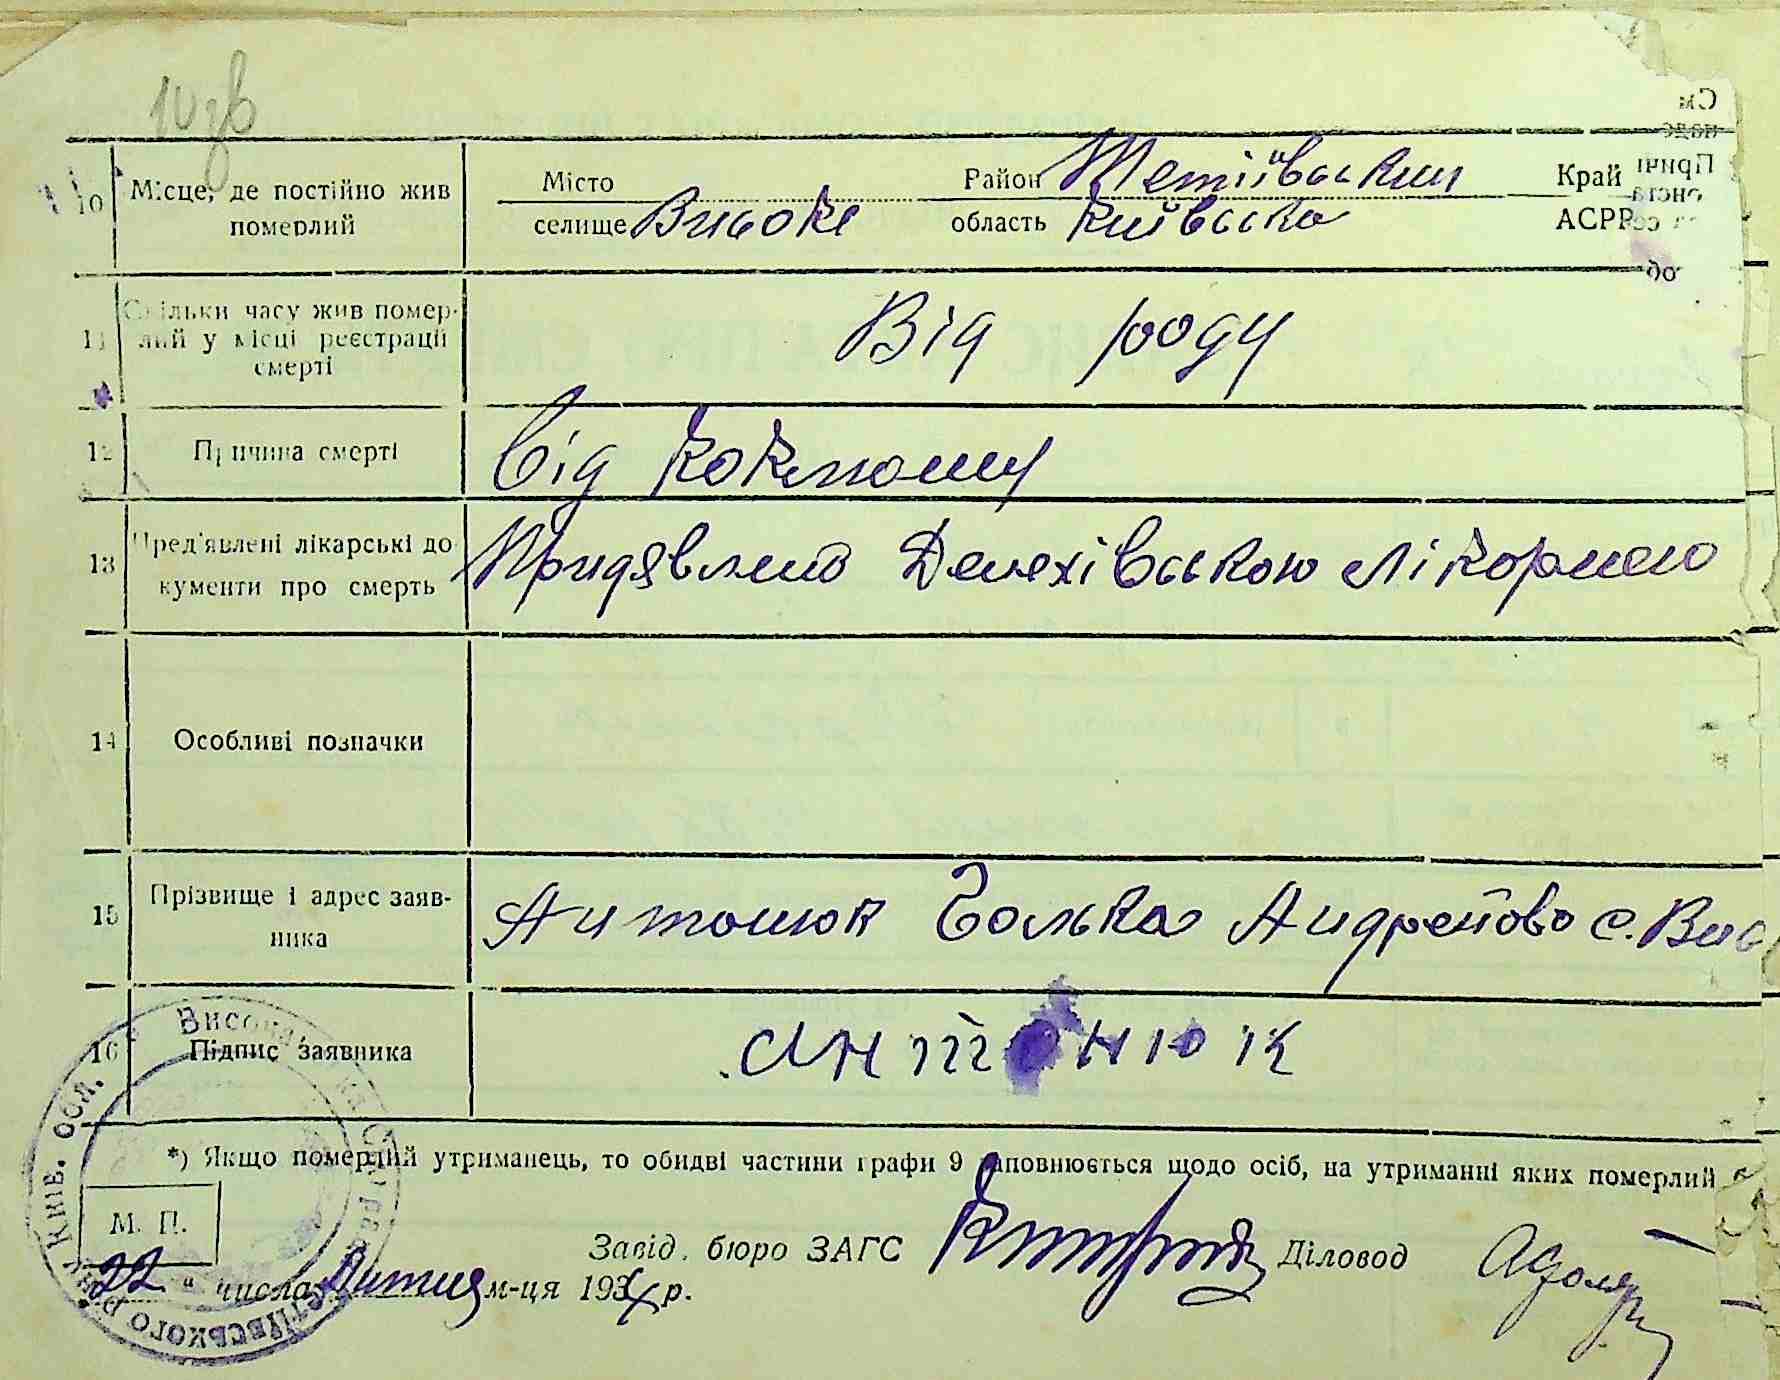 10 Місце, де постійно жив померлий
Місто
селище Високе
Район Тетіївський
область Київська
Край
АСРР
11 Скільки часу жив помер-
лий у місці реєстрації
смерті
Від роду
12 Причина смерті
Від коклюшу
13 Пред'явлені лікарські до-
кументи про смерть
лікарнею
14 Особливі позначки
15 Прізвище і адрес заяв-
ника
Антонюк Андрейово с. Вис
16 Підпис заявника
Антонюк
*) Якщо померлий утриманець, то обидві частини графи 9 заповнюється щодо осіб, на утриманні яких померлий
М. П.
Завід. бюро ЗАГС
Діловод
"22" числа м-ця 193 р.